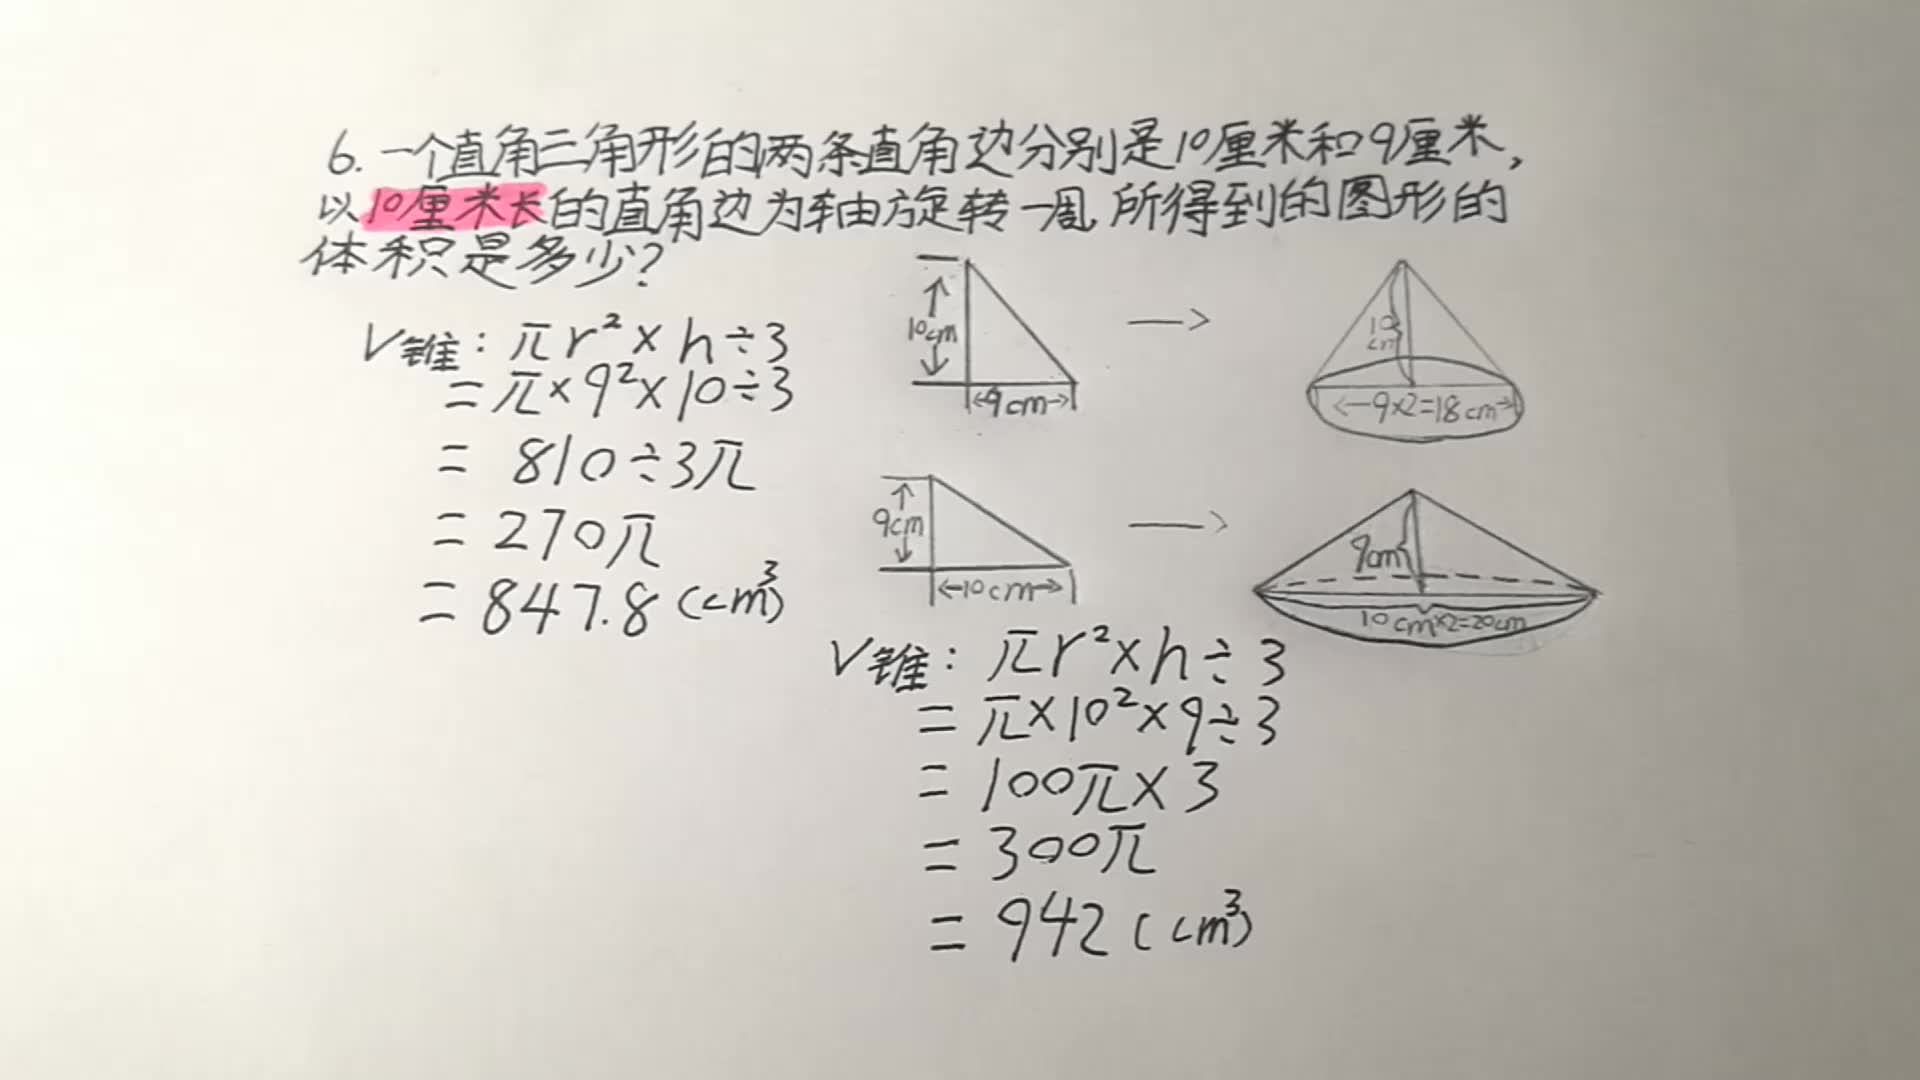 6. 一个直角三角形的两条直角边分别是10厘米和9厘米,
以10厘米长的直角边为轴旋转一周,所得到的图形的
体积是多少?
V锥: πr²×h÷3
=π×9²×10÷3
= 810÷3π
=270π
=847.8(cm³)
10cm
9cm
10cm
9×2=18cm
9cm
10cm
9cm
10cm×2=20cm
V锥: πr²×h÷3
=π×10²×9÷3
=100π×3
=300π
=942(cm³)